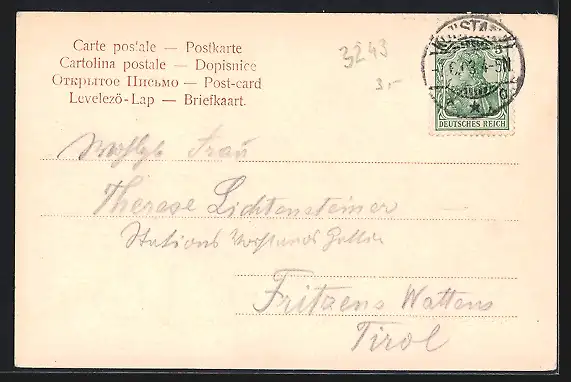 Carte postale — Postkarte
Cartolina postale — Dopisnice
Открытое Письмо — Post-card
Levelező-Lap — Briefkaart.
3243
3.-
DEUTSCHES REICH
Wohlgb Frau
Therese Lichtensteiner
Stations Vorstands Gattin
Fritzens Wattens
Tirol